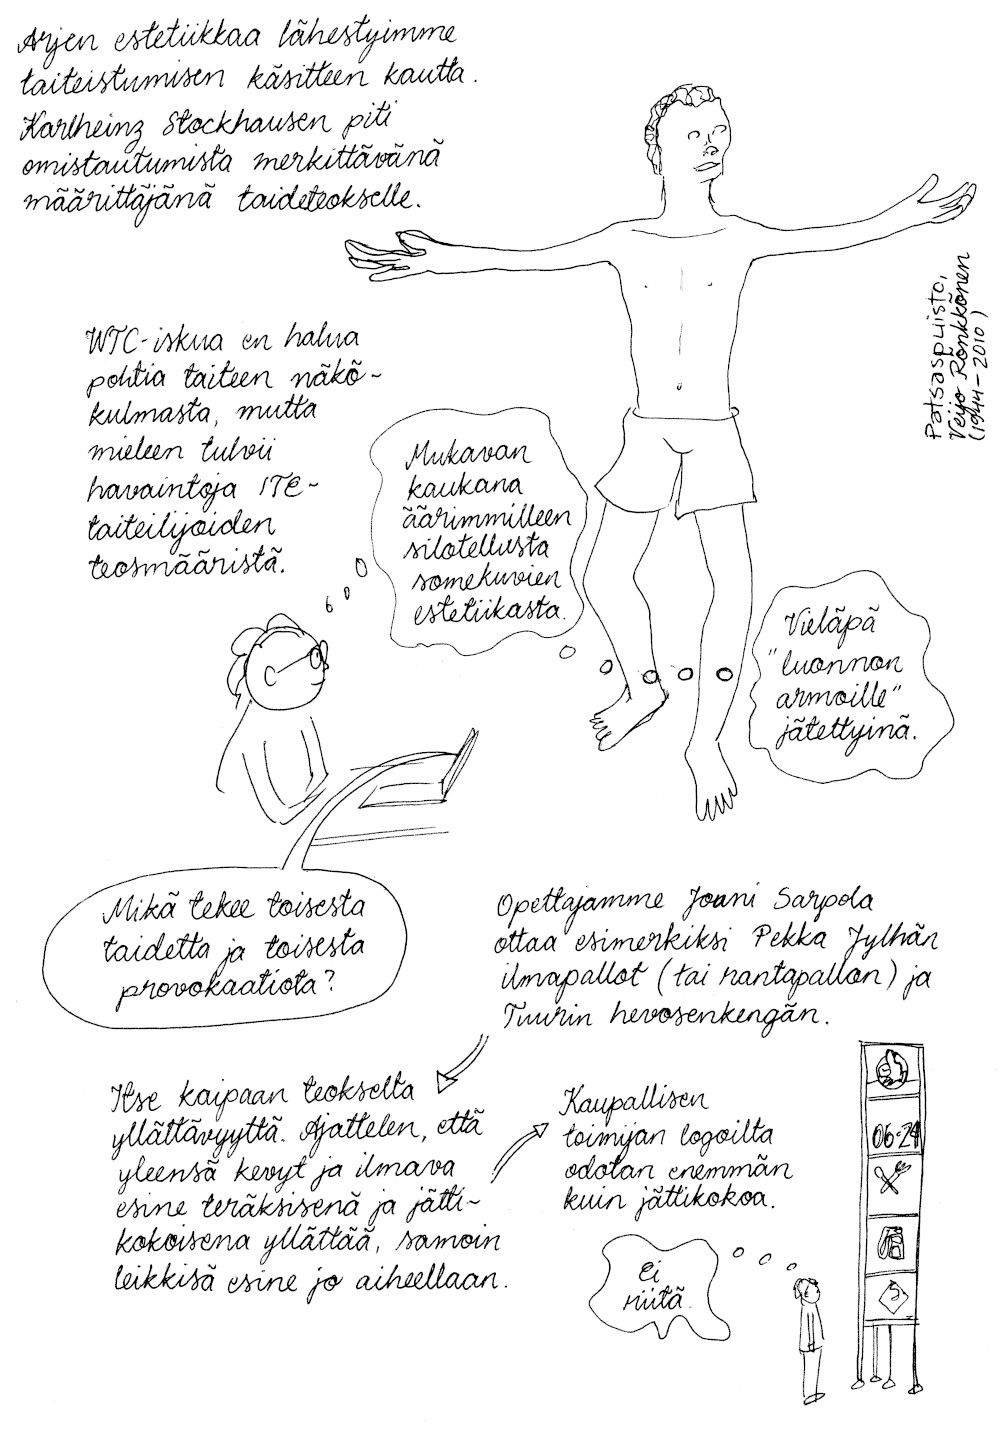 Arjen estetiikkaa lähestyimme
taiteistumisen käsitteen kautta.
Karlheinz Stockhausen piti
omistautumista merkittävänä
määrittäjänä taideteokselle.
Patsaspuisto,
Veijo Rönkkönen
(1944-2010)
WTC-iskua en halua
pohtia taiteen näkö-
kulmasta, mutta
mieleen tulvii
havaintoja ITE-
taiteilijoiden
teosmääristä.
Mukavan
kaukana
äärimmilleen
silotellusta
somekuvien
estetiikasta.
Vieläpä
"luonnon
armoille"
jätettyinä.
Mikä tekee toisesta
taidetta ja toisesta
provokaatiota?
Opettajamme Jouni Sarpola
ottaa esimerkiksi Pekka Jylhän
ilmapallot (tai rantapallon) ja
Tuurin hevosenkengän.
Itse kaipaan teokselta
yllättävyyttä. Ajattelen, että
yleensä kevyt ja ilmava
esine teräksisenä ja jätti-
kokoisena yllättää, samoin
leikkisä esine jo aiheellaan.
Kaupallisen
toimijan logoilta
odotan enemmän
kuin jättikokoa.
Ei
riitä.
06-24